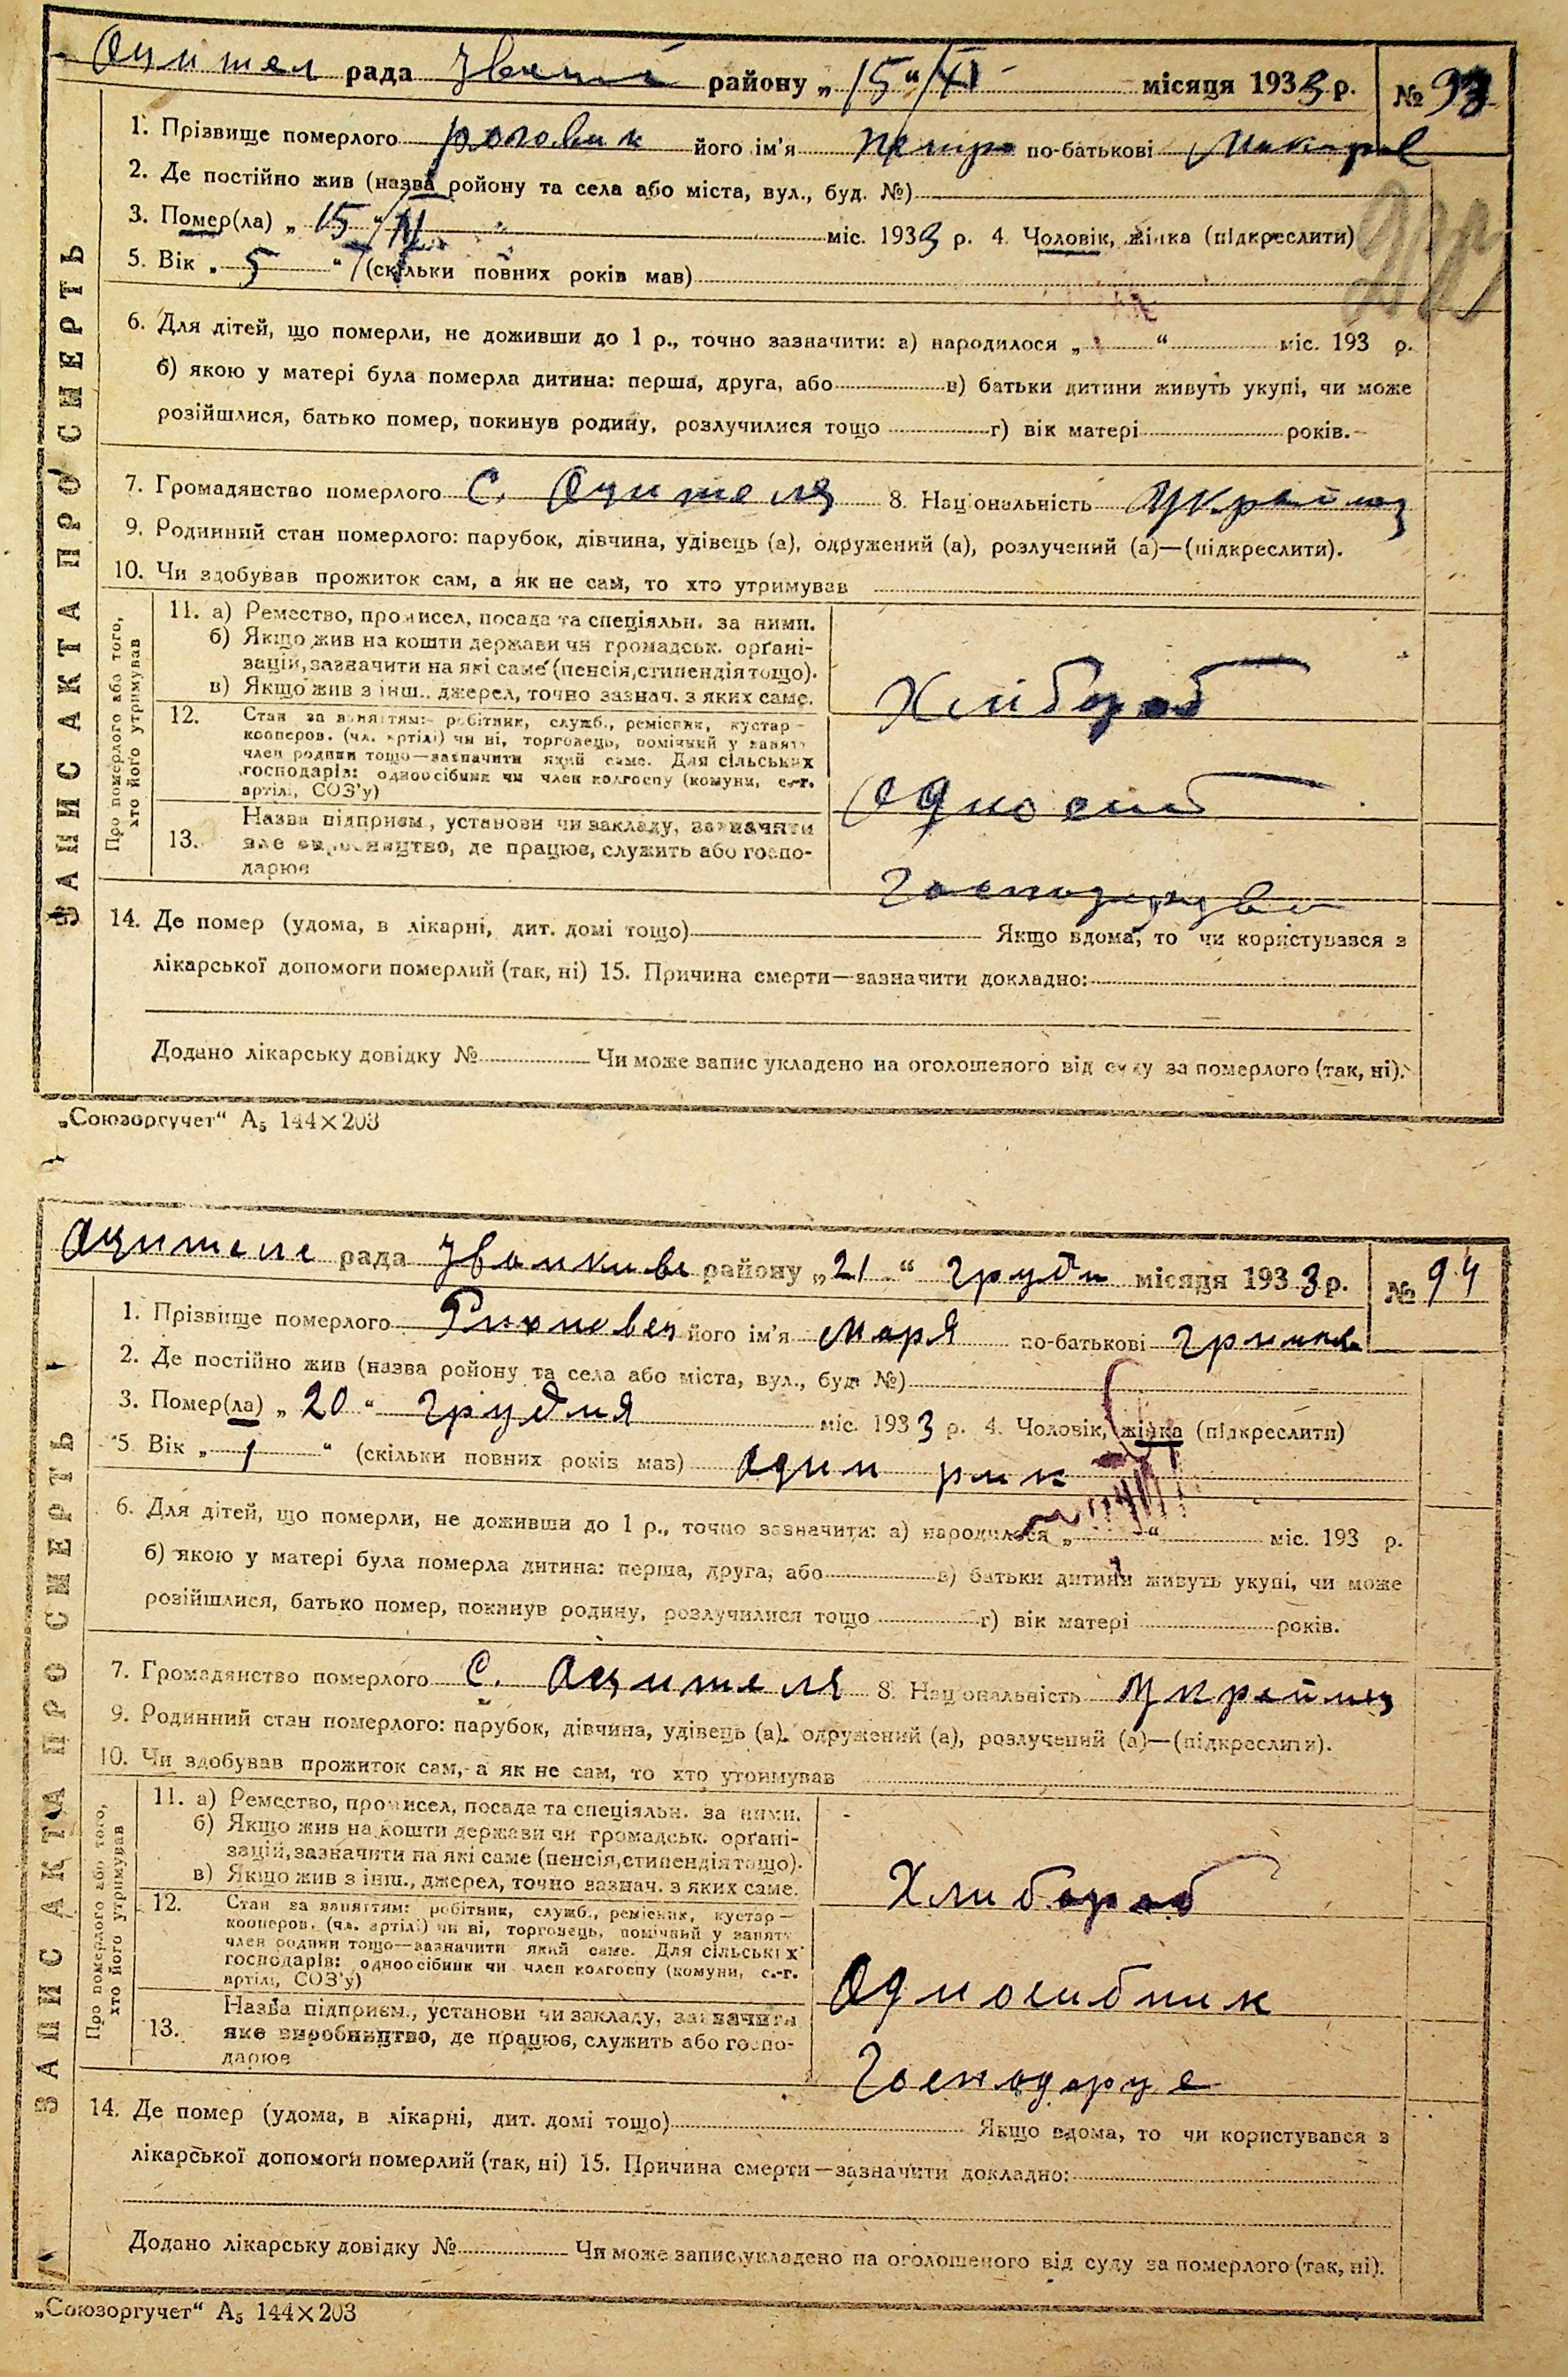 Оцител рада Звениг району „15“/XI місяця 1933 р. № 93
1. Прізвище померлого Роговик його ім'я Петро по-батькові Макаров
2. Де постійно жив (назва ройону та села або міста, вул., буд. №)
3. Помер(ла) „15“/XI міс. 1933 р. 4. Чоловік, жінка (підкреслити)
5. Вік „5“ (скільки повних років мав)
6. Для дітей, що померли, не доживши до 1 р., точно зазначити: а) народилося „ “ міс. 193 р.
б) якою у матері була померла дитина: перша, друга, або в) батьки дитини живуть укупі, чи може
розійшлися, батько помер, покинув родину, розлучилися тощо г) вік матері років.
7. Громадянство померлого С. Оцителя 8. Національність Українец
9. Родинний стан померлого: парубок, дівчина, удівець (а), одружений (а), розлучений (а)—(підкреслити).
10. Чи здобував прожиток сам, а як не сам, то хто утримував
ЗАПИС АКТА ПРО СМЕРТЬ
Про померлого або того,
хто його утримував
11. а) Ремество, промисел, посада та спеціяльн. за ними.
б) Якщо жив на кошти держави чи громадськ. орґані-
зацій, зазначити на які саме (пенсія, стипендія тощо).
в) Якщо жив з інш., джерел, точно зазнач. з яких саме.
Хлибороб
12. Стан за заняттям: робітник, служб., ремісник, кустар—
кооперов. (чл. артілі) чи ні, торговець, помічний у занятт
член родини тощо—зазначити який саме. Для сільських
господарів: одноосібник чи член колгоспу (комуни, с.-г.
артілі, СОЗ'у)
Одноосиб
13. Назва підприєм., установи чи закладу, зазначити
яке виробництво, де працює, служить або госпо-
дарює
14. Де помер (удома, в лікарні, дит. домі тощо) Якщо вдома, то чи користувався з
лікарської допомоги померлий (так, ні) 15. Причина смерти—зазначити докладно:
Додано лікарську довідку № Чи може запис укладено на оголошеного від суду за померлого (так, ні).
„Союзоргучет“ А₅ 144×203
Оцителе рада Звенкиве району „21“ Груди місяця 1933 р. № 94
1. Прізвище померлого його ім'я Маря по-батькові
2. Де постійно жив (назва ройону та села або міста, вул., буд. №)
3. Помер(ла) „20“ Грудня міс. 1933 р. 4. Чоловік, жінка (підкреслити)
5. Вік „1“ (скільки повних років мав) один рик
6. Для дітей, що померли, не доживши до 1 р., точно зазначити: а) народилося „ “ міс. 193 р.
б) якою у матері була померла дитина: перша, друга, або в) батьки дитини живуть укупі, чи може
розійшлися, батько помер, покинув родину, розлучилися тощо г) вік матері років.
7. Громадянство померлого С. Оцителя 8. Національність Українец
9. Родинний стан померлого: парубок, дівчина, удівець (а), одружений (а), розлучений (а)—(підкреслити).
10. Чи здобував прожиток сам, а як не сам, то хто утримував
ЗАПИС АКТА ПРО СМЕРТЬ
Про померлого або того,
хто його утримував
11. а) Ремество, промисел, посада та спеціяльн. за ними.
б) Якщо жив на кошти держави чи громадськ. орґані-
зацій, зазначити на які саме (пенсія, стипендія тощо).
в) Якщо жив з інш., джерел, точно зазнач. з яких саме.
Хлибороб
12. Стан за заняттям: робітник, служб., ремісник, кустар—
кооперов. (чл. артілі) чи ні, торговець, помічний у занятт
член родини тощо—зазначити який саме. Для сільських
господарів: одноосібник чи член колгоспу (комуни, с.-г.
артілі, СОЗ'у)
Одиосибник
13. Назва підприєм., установи чи закладу, зазначити
яке виробництво, де працює, служить або госпо-
дарює
Господоруе
14. Де помер (удома, в лікарні, дит. домі тощо) Якщо вдома, то чи користувався з
лікарської допомоги померлий (так, ні) 15. Причина смерти—зазначити докладно:
Додано лікарську довідку № Чи може запис укладено на оголошеного від суду за померлого (так, ні).
„Союзоргучет“ А₅ 144×203